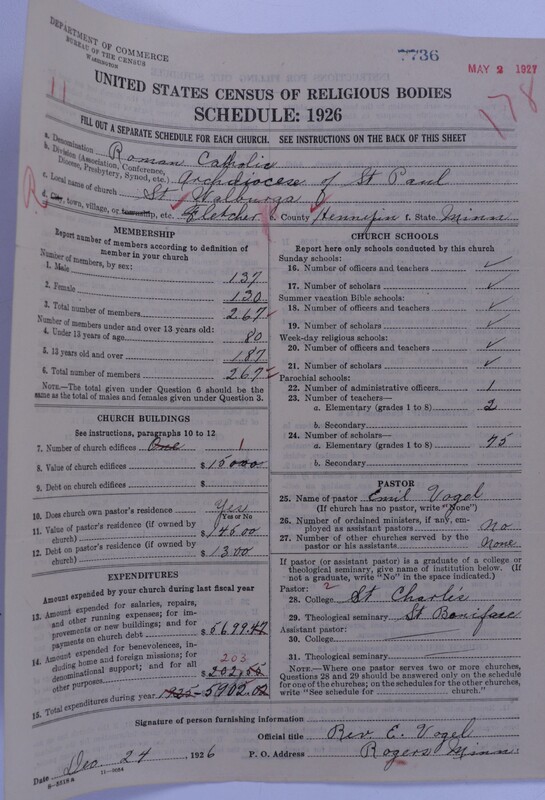 DEPARTMENT OF COMMERCE
BUREAU OF THE CENSUS
WASHINGTON
7736
MAY 2 1927
11
178
UNITED STATES CENSUS OF RELIGIOUS BODIES
SCHEDULE: 1926
FILL OUT A SEPARATE SCHEDULE FOR EACH CHURCH. SEE INSTRUCTIONS ON THE BACK OF THIS SHEET
a. Denomination Roman Catholic
b. Division (Association, Conference, Diocese, Presbytery, Synod, etc.) Archdiocese of St Paul
c. Local name of church St Walburga
R
d. City, town, village, or township, etc. Fletcher e. County Hennepin f. State Minn
MEMBERSHIP
Report number of members according to definition of member in your church
Number of members, by sex:
1. Male 137
2. Female 130
3. Total number of members 267
Number of members under and over 13 years old:
4. Under 13 years of age 80
5. 13 years old and over 187
6. Total number of members 267
NOTE.—The total given under Question 6 should be the same as the total of males and females given under Question 3.
CHURCH BUILDINGS
See instructions, paragraphs 10 to 12
7. Number of church edifices One 1
8. Value of church edifices $ 15000
9. Debt on church edifices $
10. Does church own pastor's residence Yes
Yes or No
11. Value of pastor's residence (if owned by church) $ 14500
12. Debt on pastor's residence (if owned by church) $ 1300
EXPENDITURES
Amount expended by your church during last fiscal year
13. Amount expended for salaries, repairs, and other running expenses; for improvements or new buildings; and for payments on church debt $ 5699.47
14. Amount expended for benevolences, including home and foreign missions; for denominational support; and for all other purposes $ 202.55
203
15. Total expenditures during year 1925 5902.02
CHURCH SCHOOLS
Report here only schools conducted by this church
Sunday schools:
16. Number of officers and teachers ✓
17. Number of scholars ✓
Summer vacation Bible schools:
18. Number of officers and teachers ✓
19. Number of scholars ✓
Week-day religious schools:
20. Number of officers and teachers ✓
21. Number of scholars ✓
Parochial schools:
22. Number of administrative officers 1
23. Number of teachers—
a. Elementary (grades 1 to 8) 2
b. Secondary
24. Number of scholars—
a. Elementary (grades 1 to 8) 75
b. Secondary
PASTOR
25. Name of pastor Emil Vogel
(If church has no pastor, write "None")
26. Number of ordained ministers, if any, employed as assistant pastors No
27. Number of other churches served by the pastor or his assistants None
If pastor (or assistant pastor) is a graduate of a college or theological seminary, give name of institution below. (If not a graduate, write "No" in the space indicated.)
Pastor: 2
28. College St Charles
29. Theological seminary St Boniface
Assistant pastor:
30. College
31. Theological seminary
NOTE.—Where one pastor serves two or more churches, Questions 28 and 29 should be answered only on the schedule for one of the churches; on the schedules for the other churches, write "See schedule for church."
Signature of person furnishing information
Official title Rev. E. Vogel
Date Dec 24, 1926 P. O. Address Rogers Minn
8—3518 a 11—9084